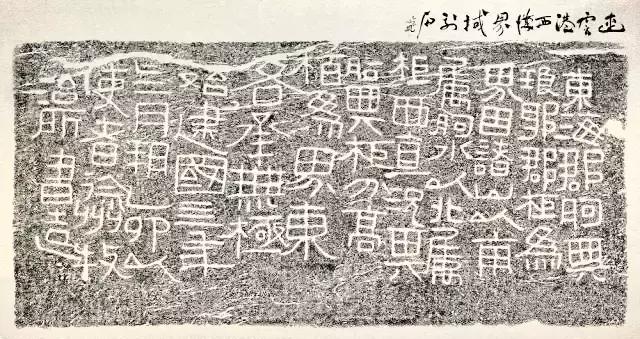 連雲港西漢界域刻石
東海郡朐與
琅邪郡柜為
界因諸山以南
屬朐水以北屬
柜西直況其
朐與柜分高
陌為界東
各承無極
始建國四年
四月朔乙卯以
使者徐州牧
治所書造